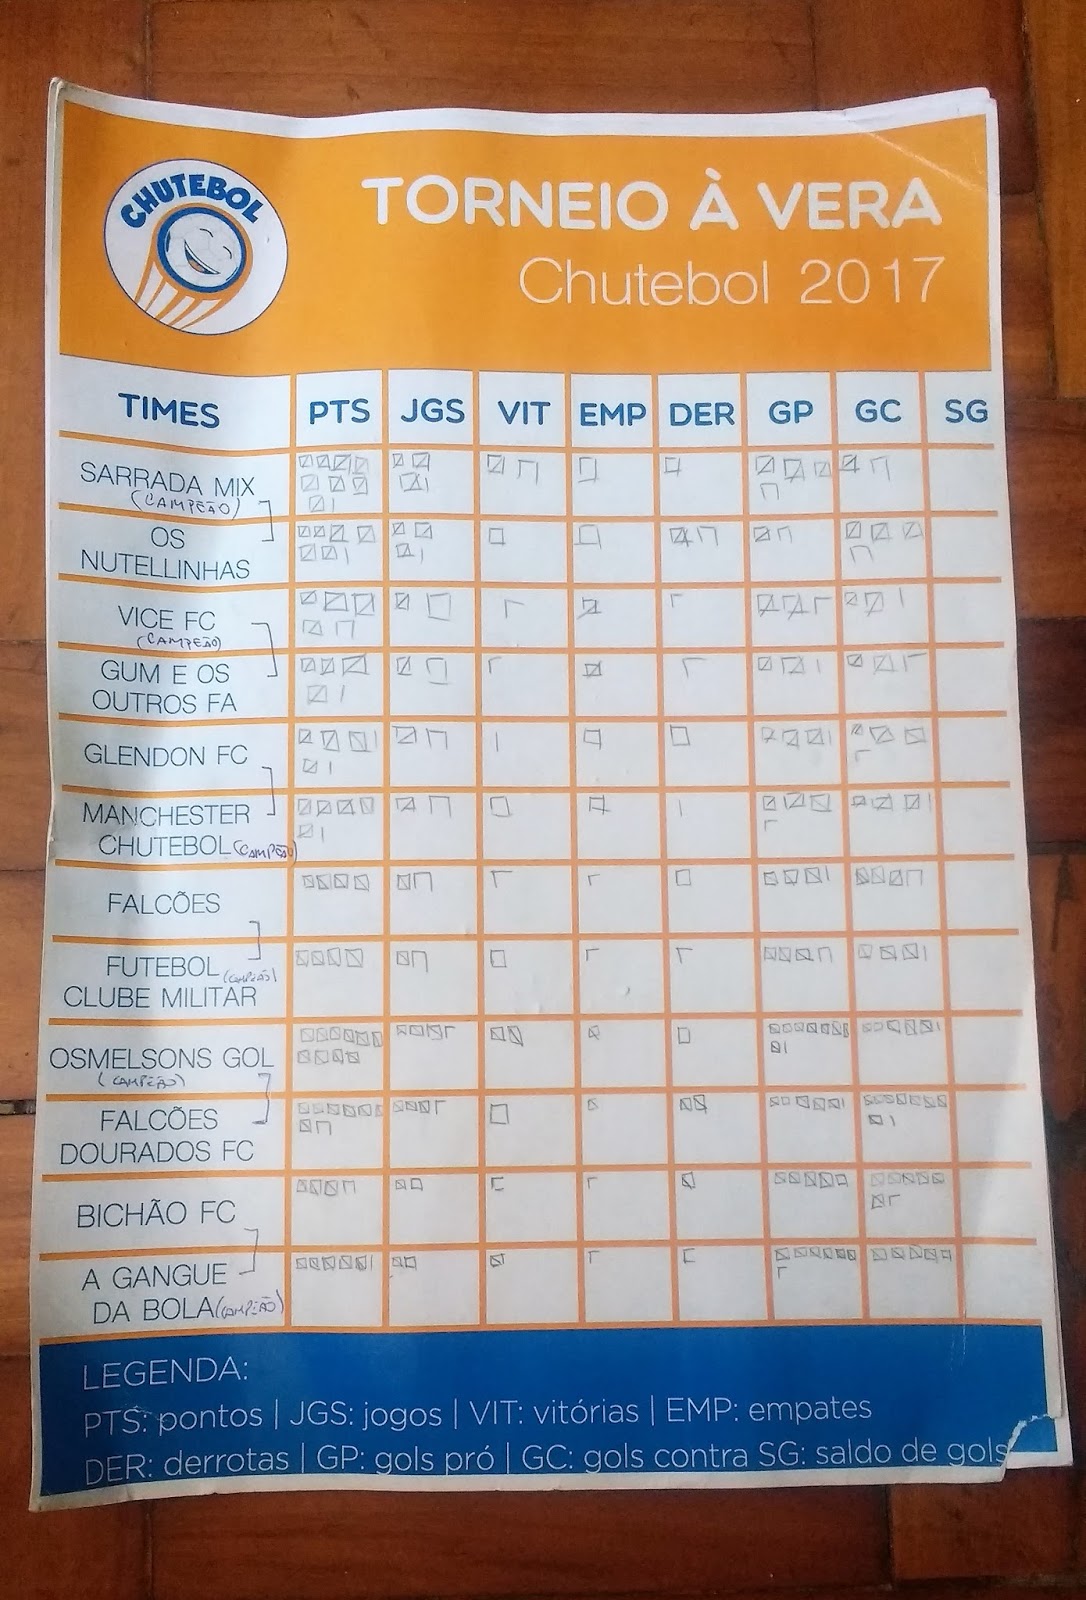 CHUTEBOL
TORNEIO À VERA
Chutebol 2017
TIMES PTS JGS VIT EMP DER GP GC SG
SARRADA MIX
(CAMPEÃO)
OS
NUTELLINHAS
VICE FC
(CAMPEÃO)
GUM E OS
OUTROS FA
GLENDON FC
MANCHESTER
CHUTEBOL (CAMPEÃO)
FALCÕES
FUTEBOL (CAMPEÃO)
CLUBE MILITAR
OSMELSONS GOL
(CAMPEÃO)
FALCÕES
DOURADOS FC
BICHÃO FC
A GANGUE
DA BOLA (CAMPEÃO)
LEGENDA:
PTS: pontos | JGS: jogos | VIT: vitórias | EMP: empates
DER: derrotas | GP: gols pró | GC: gols contra SG: saldo de gols